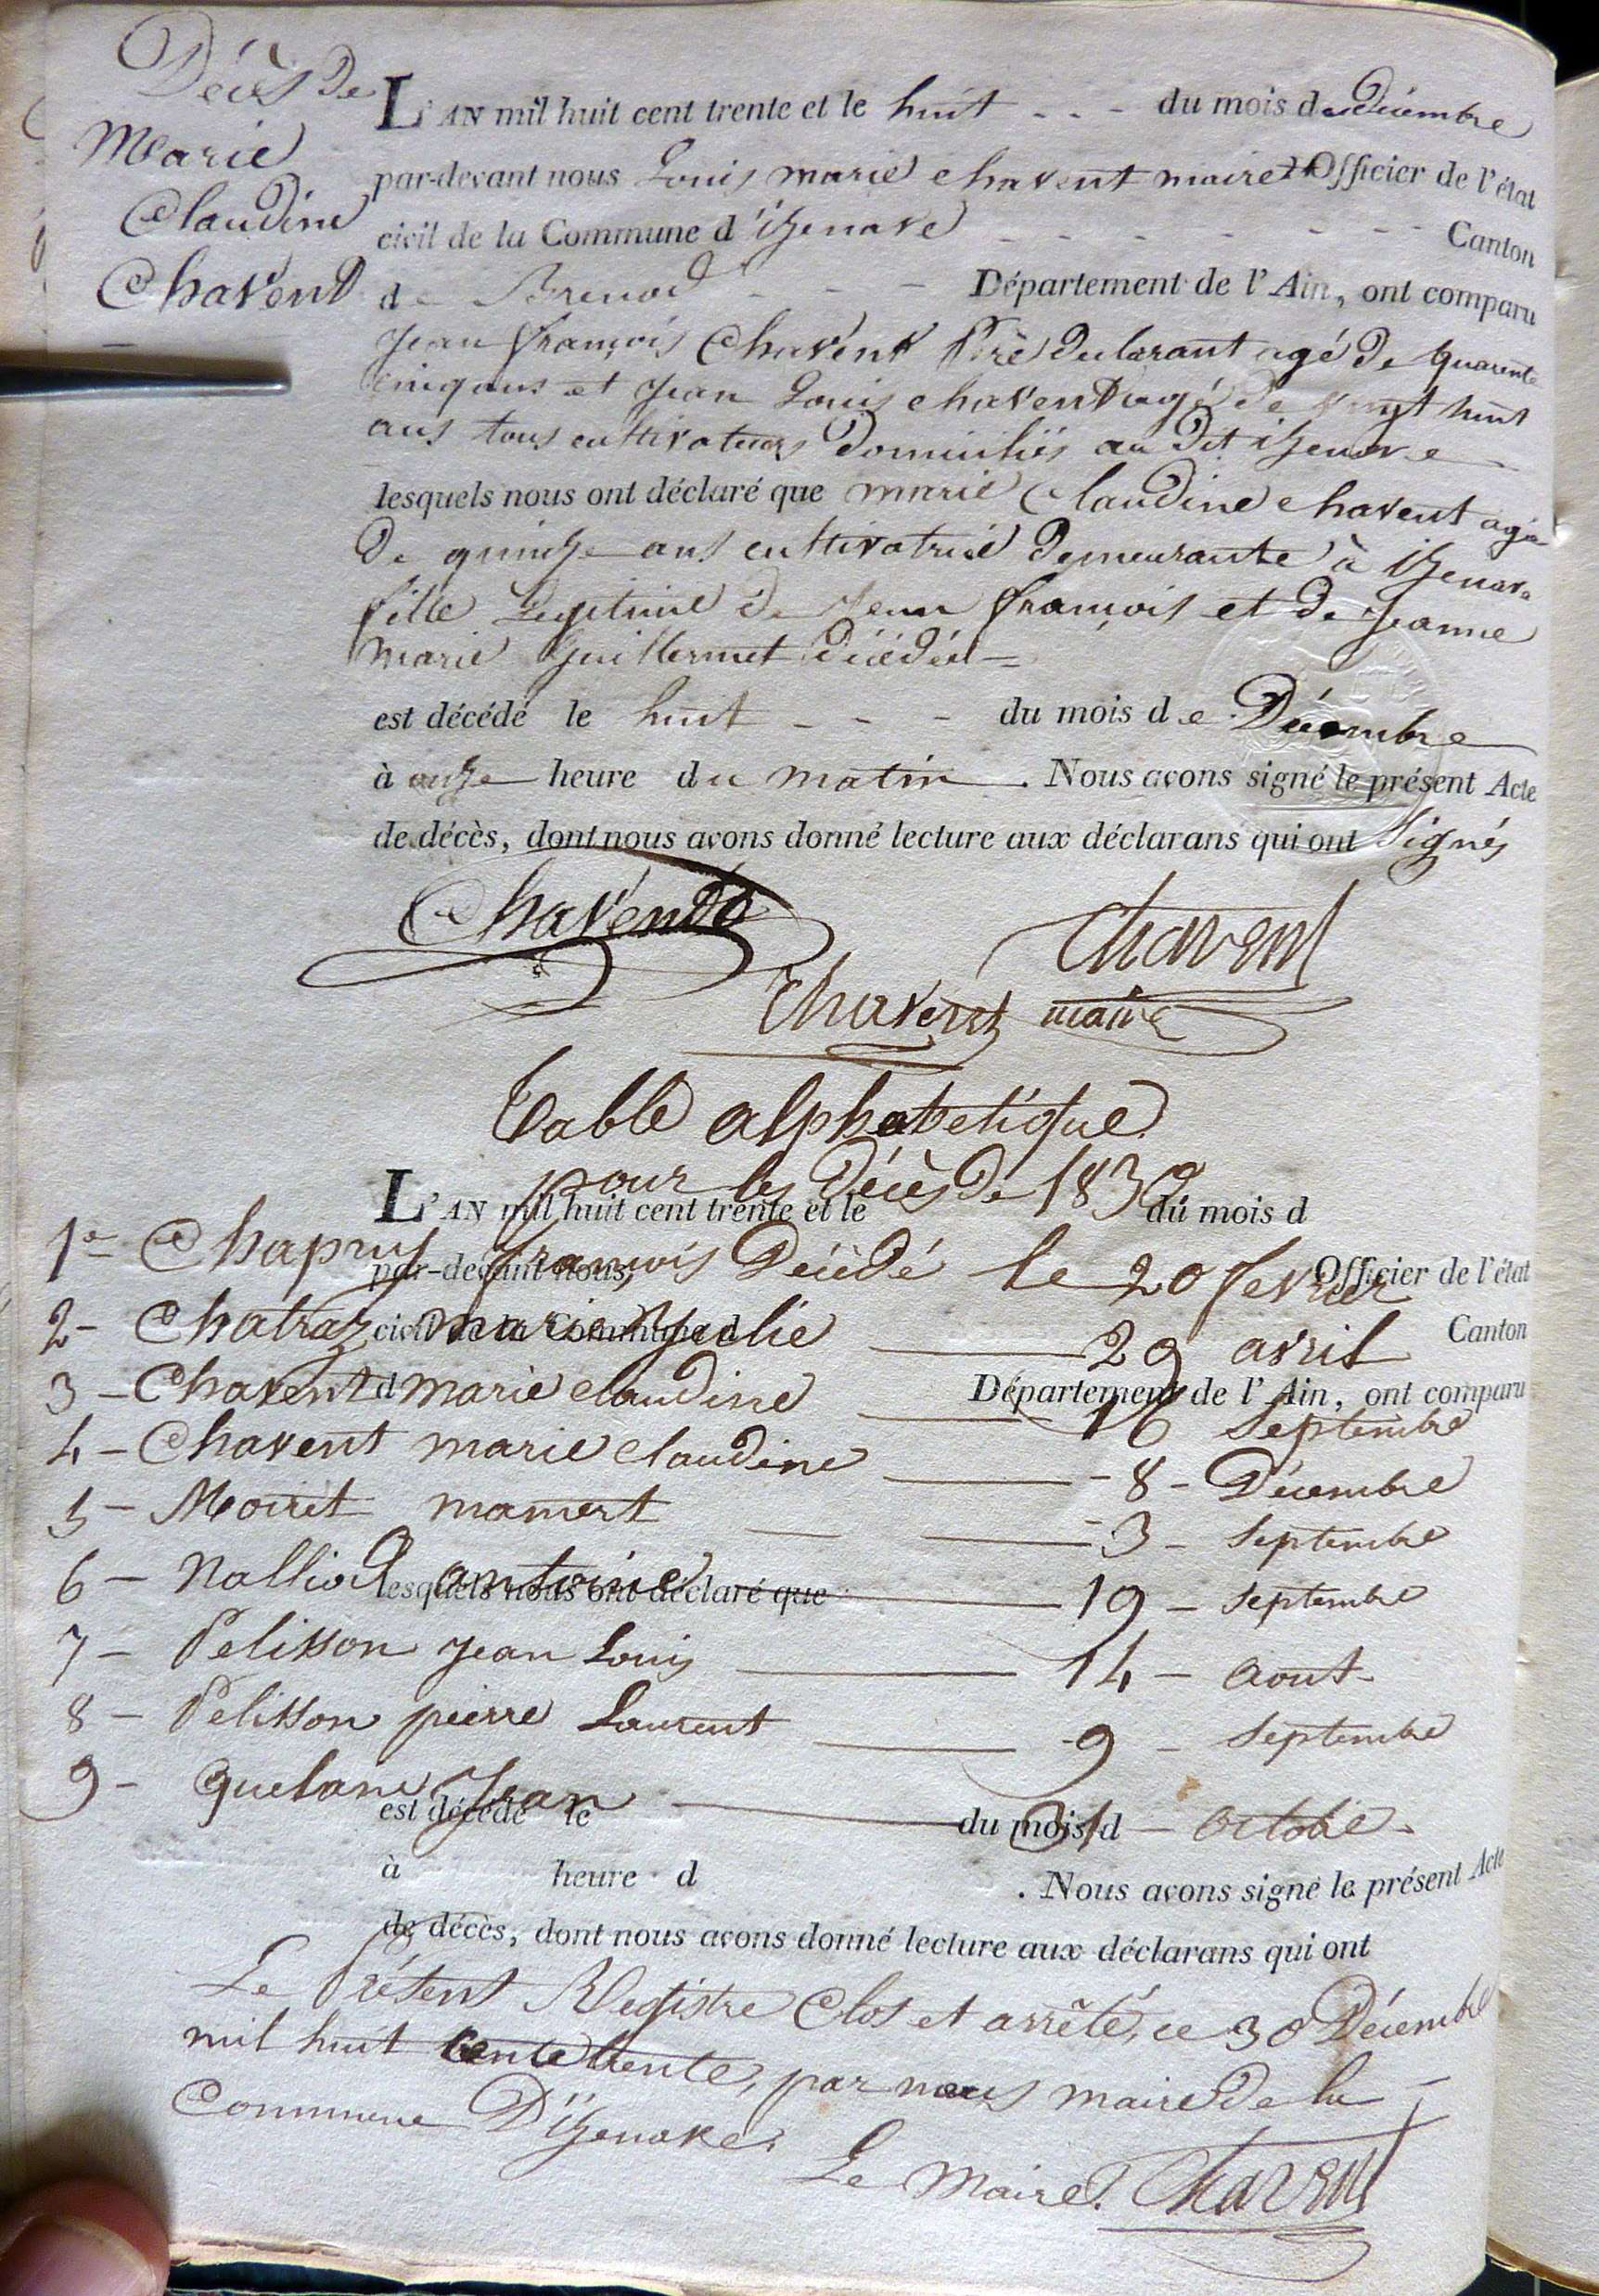 Décès De
Marie
Claudine
Chavent
L'AN mil huit cent trente et le huit - - - du mois de Décembre
par-devant nous Louis marie chavent maire et Officier de l'état
civil de la Commune d'izenave - - - - - - - Canton
de Brenod - - - Département de l'Ain, ont comparu
Jean françois Chavent Père declarant agé De quarente
cinq ans et Jean Louis chavent agé de vingt huit
ans tous cultivateurs Domiciliés au Dit izenave
lesquels nous ont déclaré que marie Claudine chavent agée
De quinze ans cultivatrice Demeurante à izenave
fille Legitime De Jean françois et De Jeanne
Marie Guillermet Décédée =
est décédé le huit - - - du mois de Décembre
à onze heure du matin. Nous avons signé le présent Acte
de décès, dont nous avons donné lecture aux déclarans qui ont Signés
Chavent
Chavent
Chavent maire
Table alphabetique
pour les Décès De 1830
L'AN mil huit cent trente et le du mois d
1e Chapuy françois Décédé le 20 fevrier
par-devant nous, Officier de l'état
2 - Chatraz marie Julie 29 avril
civil de la Commune d Canton
3 - Chavent marie claudine 16 Septembre
d Département de l'Ain, ont comparu
4 - Chavent marie claudine - 8 - Décembre
5 - Moiret mamert - 3 - Septembre
6 - Nalliod antoine 19 - Septembre
lesquels nous ont déclaré que
7 - Pelisson Jean Louis 14 - Aout
8 - Pelisson pierre Laurent - 9 - Septembre
9 - Jean 31 - Octobre.
est décédé le du mois d
à heure d . Nous avons signé le présent Acte
de décès, dont nous avons donné lecture aux déclarans qui ont
Le Présent Registre Clos et arrêté, ce 30 Décembre
mil huit cente trente, par nous maire De la
Commune D'izenave.
Le Maire. Chavent